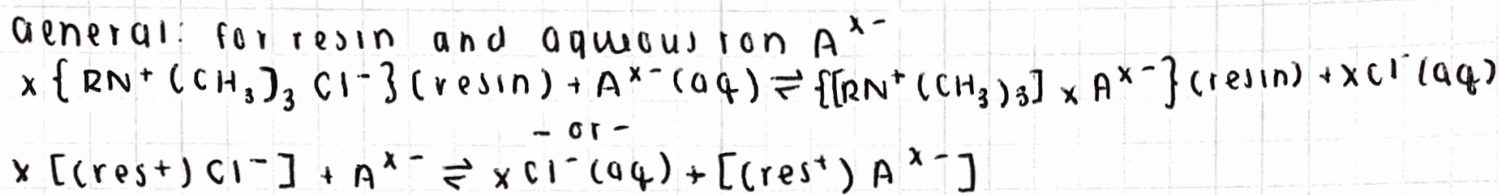 General: for resin and aqueous ion Aˣ⁻
x { RN⁺ (CH₃)₃ Cl⁻} (resin) + Aˣ⁻ (aq) ⇌ {[RN⁺ (CH₃)₃] x Aˣ⁻} (resin) + xCl⁻ (aq)
- or -
x [(res+) Cl⁻] + Aˣ⁻ ⇌ x Cl⁻ (aq) + [(res⁺) Aˣ⁻]